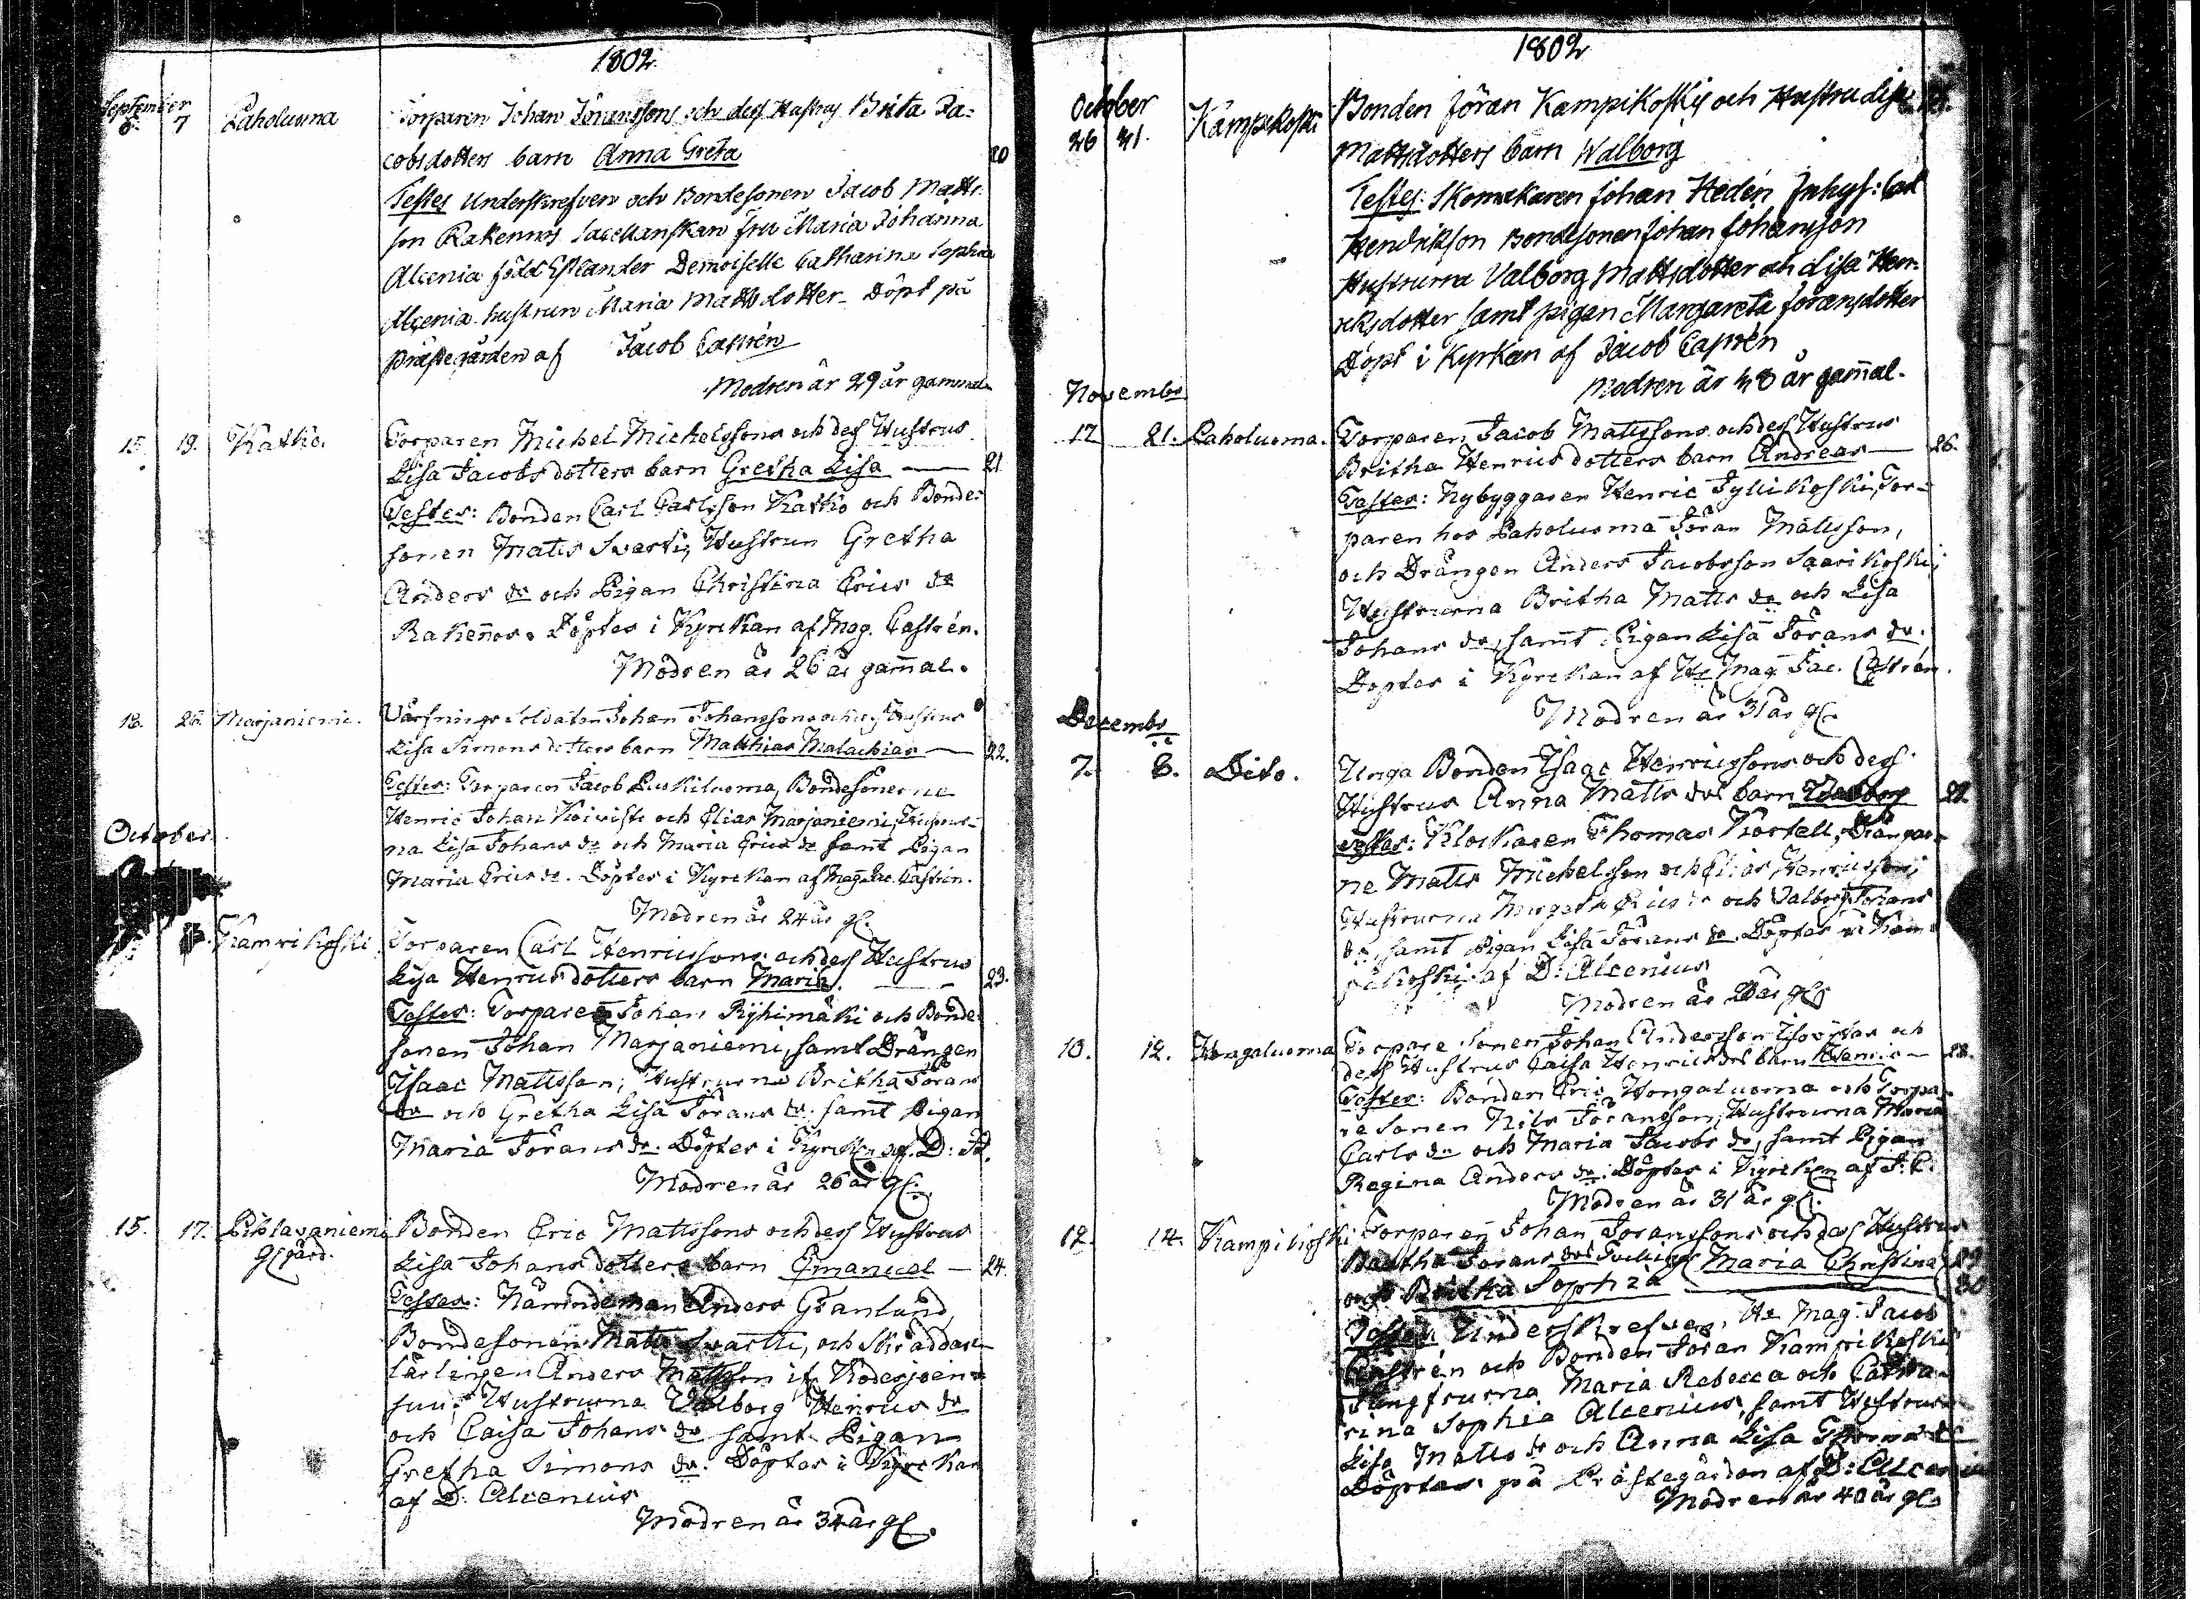 1802
September
6. 7 Laholuoma Torparen Johan Jöranssons och dess Hustrus Brita Ja-
cobsdotters barn Anna Greta 20
Testes Underskrefven och Bondesonen Jacob Matts
son Rakennos Sacellanskan fru Maria Johanna
Alcenia född Estlander Demoiselle Catharina Sophia
Alcenia hustrun Maria Matts dotter. Döpt på
Prästegården af Jacob Castrén
Modren är 29 år gammal
15. 19. Kattko. Torparen Michel Michelssons och dess Hustrus
Lisa Jacobs dotters barn Gretha Lisa — 21
Testes: Bonden Carl Carlsson Kattko och Bonde-
sonen Matts Svarti, Hustrun Gretha
Anders dr och Pigan Christina Erics dr
Rakenños. Döptes i Kyrckan af Mag. Castrén.
Modren är 26 år gam̄al.
18. 26. Marjaniemi. Vårfnings Soldaten Johan Johanssons och dess Hustrus
Lisa Simons dotters barn Matthias Malachias — 22.
Testes: Torparen Jacob Luokiluoma, Bondesönerne
Henric Johan Koivisto och Elias Marjaniemi, Hustrur-
na Lisa Johans dr och Maria Erics dr samt Pigan
Maria Erics dr. Döptes i Kyrckan af Mag Jac. Castrén.
Modren är 24 år gl.
October
Kampikoski Torparen Carl Henricssons och dess Hustrus
Lisa Henrics dotters barn Maria. — 23.
Testes: Torparen Johan Ryhimäki och Bonde-
sonen Johan Marjaniemi, samt Drängen
Isaac Mattsson, Hustrurna Britha Jörans
dr och Gretha Lisa Jörans dr. samt Pigan
Maria Jörans dr. Döptes i Kyrckan af D:
Modren är 26 år gl.
15. 17. Pihlavaniemi Bonden Eric Mattssons och dess Hustrus
Lisa Johans dotters barn Emanuel — 24.
Testes: Nämndeman Anders Granlund,
Bondesonen Matts Svartti, och Skräddare-
lärlingen Anders Mattsson if. Koderjoen-
suu, Hustrurna Valborg Henrics dr
och Caisa Johans dr samt Pigan
Gretha Simons dr. Döptes i Kyrckan
af D: Alcenius
Modren är 34 år gl.
1802
October
26 31. Kampikoski Bonden Jöran Kampikoskis och Hustru Lisa
Mattsdotters barn Walborg
Testes: Skomakaren Johan Hedén Inhys: Carl
Hendrikson Bondesonen Johan Johansson
Hustrurna Valborg Mattsdotter och Lisa Hen-
riksdotter samt pigan Margareta Jöransdotter
Döpt i Kyrkan af Jacob Castrén
Modren är 48 år gam̄al.
Novembr
17 21. Laholuoma. Torparen Jacob Mattssons och dess Hustrus
Britha Henrics dotters barn Andreas — 26.
Testes: Nybyggaren Henric Jyllikoski, Tor-
paren hos Laholuoma Jöran Mattsson,
och Drängen Anders Jacobsson Saarikoski;
Hustrurna Britha Matts dr och Lisa
Johans dr, samt Pigan Lisa Jörans dr.
Döptes i Kyrckan af Hr Mag Jac. Castrén.
Modren är 31 år gl.
Decembr
7. 8. Dito. Unga Bonden Isaac Henricssons och dess
Hustrus Anna Matts drs barn Walborg 27
Testes: Klockaren Thomas Kortell, Drängar-
ne Matts Michelsson och Elias Henricsson;
Hustrurna Margeta Erics dr och Valborg Johans
dr, samt Pigan Lisa Jörans dr. Döptes på Kam-
pikoski af D: Alcenius
Modren är 28 år gl
10. 12. Hongaluoma Torpare Sonen Johan Andersson och
dess Hustrus Caisa Henrics drs barn Henric — 28.
Testes: Bonden Eric Hongaluoma och Torpa-
re Sonen Nils Jöransson, Hustrurna Maria
Carls dr och Maria Jacobs dr, samt Pigan
Regina Anders dr. Döptes i Kyrckan af J: C.
Modren är 31 år gl.
12. 14. Kampikoski Torparen Johan Joranssons och dess Hustrus
Britha Jorans drs Tvillingar Maria Christina 29
och Britha Sophia 30
Testes: Underskrefven, Hr Mag: Jacob
Castrén och Bonden Jöran Kampikoski
Jungfrurna Maria Rebecca och Catha-
rina Sophia Alcenius, samt Hustrurna
Lisa Matts dr och Anna Lisa Thomæ dr
Döptes på Prästegården af D: Alcenius
Modren är 40 år gl.